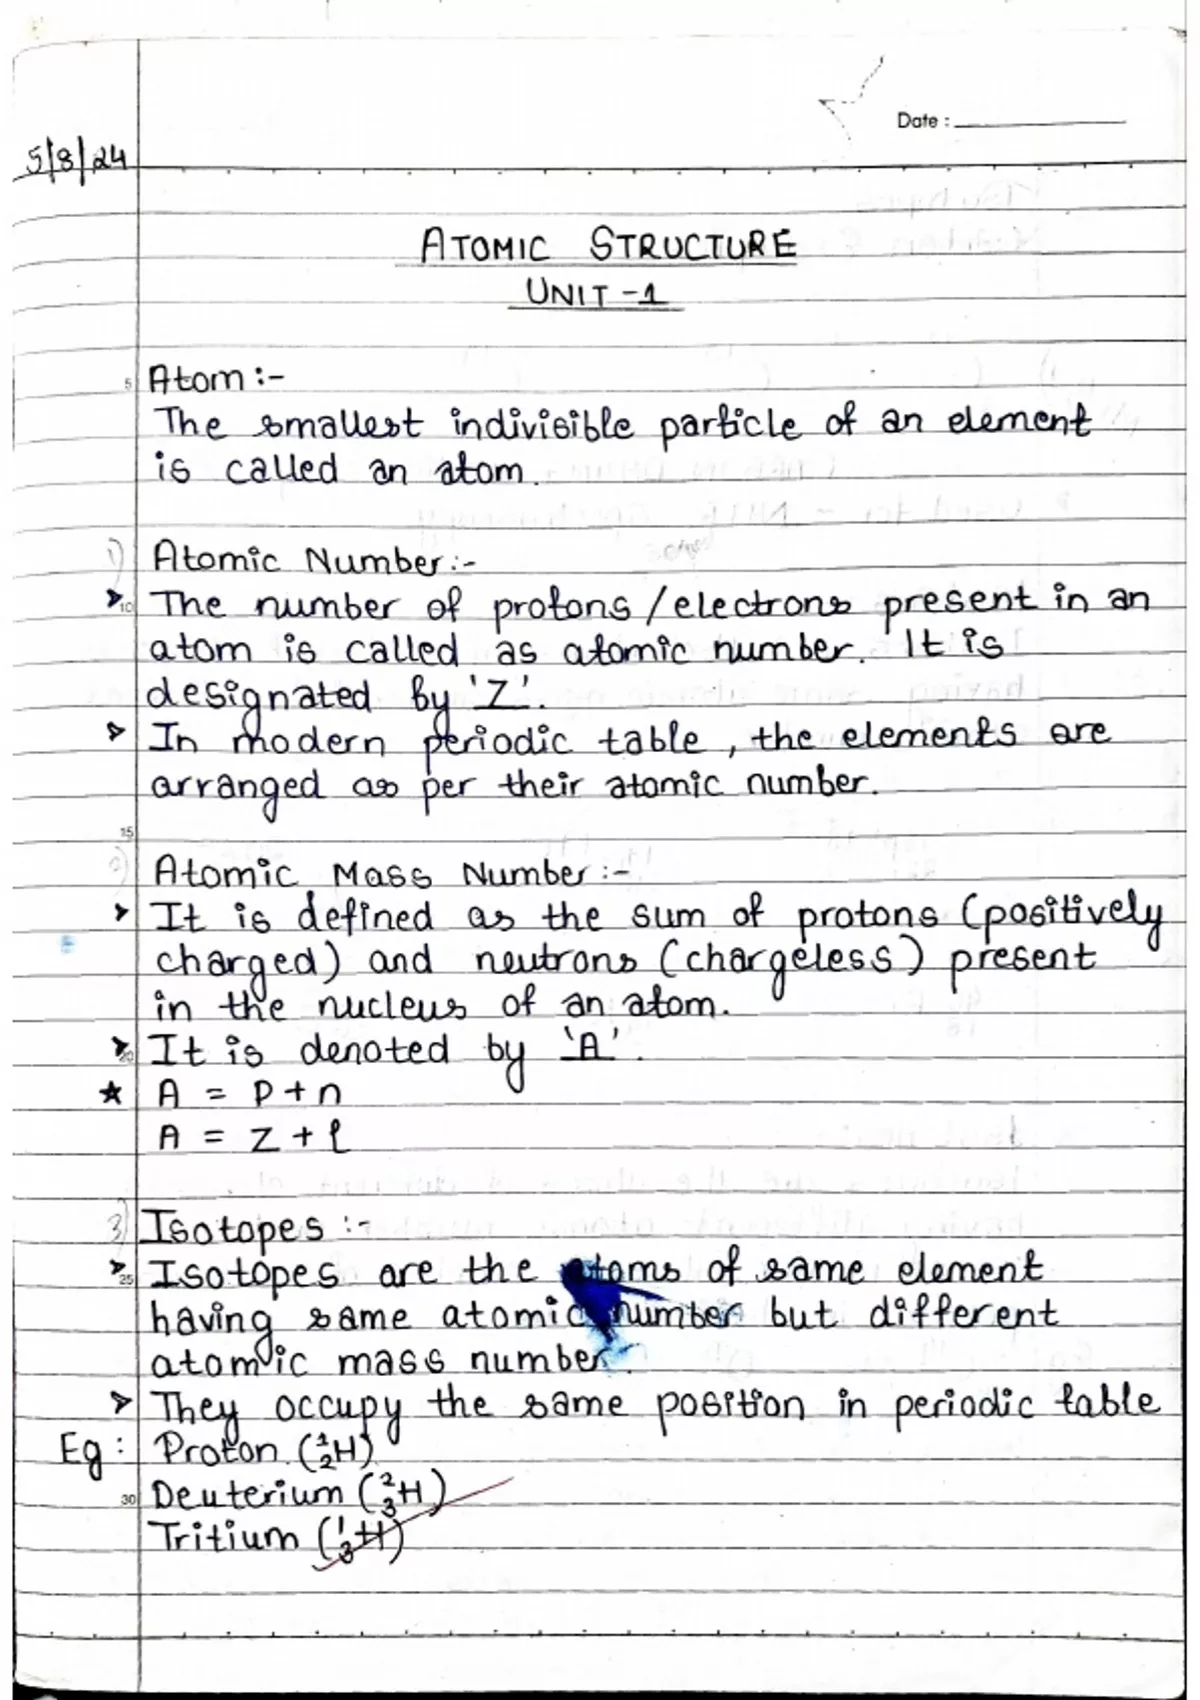 Date :
5/8/24
ATOMIC STRUCTURE
UNIT-1
5 Atom :-
The smallest indivisible particle of an element
is called an atom.
1) Atomic Number:-
10 The number of protons / electrons present in an
atom is called as atomic number. It is
designated by 'Z'.
In modern periodic table, the elements are
arranged as per their atomic number.
15
2) Atomic Mass Number :-
It is defined as the sum of protons (positively
charged) and neutrons (chargeless) present
in the nucleus of an atom.
20 It is denoted by 'A'.
★ A = p+n
A = Z + l
3) Isotopes :-
25 Isotopes are the atoms of same element
having same atomic number but different
atomic mass number.
They occupy the same position in periodic table
Eg : Proton (1/2H)
30 Deuterium (2/3H)
Tritium (1/3H)